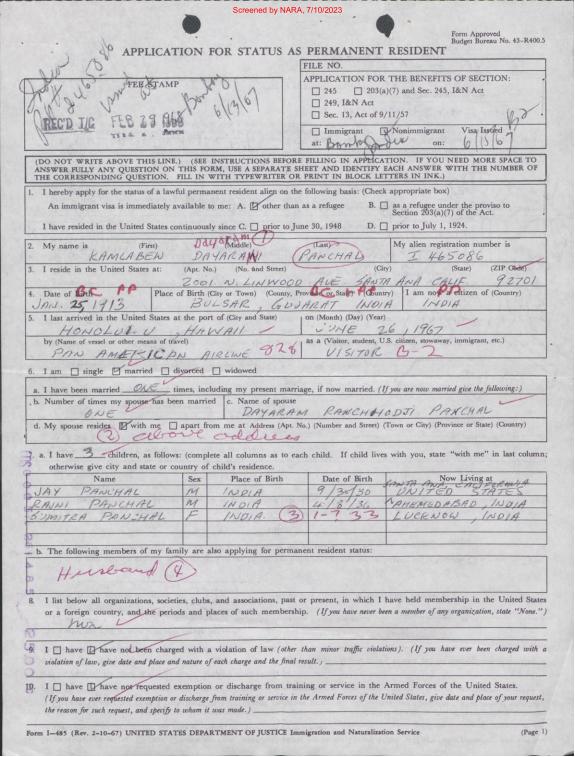 Screened by NARA, 7/10/2023
Form Approved
Budget Bureau No. 43-R400.5
APPLICATION FOR STATUS AS PERMANENT RESIDENT
FEE STAMP
REC'D I/C FEB 29 1968
Bombay
6/13/67
FILE NO.
APPLICATION FOR THE BENEFITS OF SECTION:
☐ 245 ☐ 203(a)(7) and Sec. 245, I&N Act
☐ 249, I&N Act
☐ Sec. 13, Act of 9/11/57
☐ Immigrant ☑ Nonimmigrant Visa Issued
at: Bombay India on: 6/13/67
(DO NOT WRITE ABOVE THIS LINE.) (SEE INSTRUCTIONS BEFORE FILLING IN APPLICATION. IF YOU NEED MORE SPACE TO
ANSWER FULLY ANY QUESTION ON THIS FORM, USE A SEPARATE SHEET AND IDENTIFY EACH ANSWER WITH THE NUMBER OF
THE CORRESPONDING QUESTION. FILL IN WITH TYPEWRITER OR PRINT IN BLOCK LETTERS IN INK.)
1. I hereby apply for the status of a lawful permanent resident alien on the following basis: (Check appropriate box)
An immigrant visa is immediately available to me: A. ☑ other than as a refugee B. ☐ as a refugee under the proviso to
Section 203(a)(7) of the Act.
I have resided in the United States continuously since C. ☐ prior to June 30, 1948 D. ☐ prior to July 1, 1924.
2. My name is (First) (Middle) (Last) My alien registration number is
Dayaram 1
KAMLABEN DAYARAM PANCHAL I 465086
3. I reside in the United States at: (Apt. No.) (No. and Street) (City) (State) (ZIP Code)
2001 N. LINWOOD AVE SANTA ANA CALIF. 92701
4. Date of Birth Place of Birth (City or Town) (County, Province or State) (Country) I am now a citizen of (Country)
BC PP BC PP PP
JAN. 25, 1913 BULSAR, GUJARAT INDIA INDIA
5. I last arrived in the United States at the port of (City and State) on (Month) (Day) (Year)
HONOLULU, HAWAII JUNE 26, 1967
by (Name of vessel or other means of travel) as a (Visitor, student, U.S. citizen, stowaway, immigrant, etc.)
PAN AMERICAN AIRLINE 828 VISITOR B-2
6. I am ☐ single ☑ married ☐ divorced ☐ widowed
a. I have been married ONE times, including my present marriage, if now married. (If you are now married give the following:)
b. Number of times my spouse has been married c. Name of spouse
ONE DAYARAM RANCHHODJI PANCHAL
d. My spouse resides ☑ with me ☐ apart from me at Address (Apt. No.) (Number and Street) (Town or City) (Province or State) (Country)
2 above address
7. a. I have 3 children, as follows: (complete all columns as to each child. If child lives with you, state "with me" in last column;
otherwise give city and state or country of child's residence.
Name Sex Place of Birth Date of Birth Now Living at
SANTA ANA, CALIFORNIA
JAY PANCHAL M INDIA 9/30/30 UNITED STATES
M INDIA AHEMEDABAD, INDIA
SUMITRA PANCHAL F INDIA 3 1-7 33 LUCKNOW, INDIA
b. The following members of my family are also applying for permanent resident status:
Husband 4
8. I list below all organizations, societies, clubs, and associations, past or present, in which I have held membership in the United States
or a foreign country, and the periods and places of such membership. (If you have never been a member of any organization, state "None.")
9. I ☐ have ☑ have not been charged with a violation of law (other than minor traffic violations). (If you have ever been charged with a
violation of law, give date and place and nature of each charge and the final result.)
10. I ☐ have ☑ have not requested exemption or discharge from training or service in the Armed Forces of the United States.
(If you have ever requested exemption or discharge from training or service in the Armed Forces of the United States, give date and place of your request,
the reason for such request, and specify to whom it was made.)
Form I-485 (Rev. 2-10-67) UNITED STATES DEPARTMENT OF JUSTICE Immigration and Naturalization Service (Page 1)